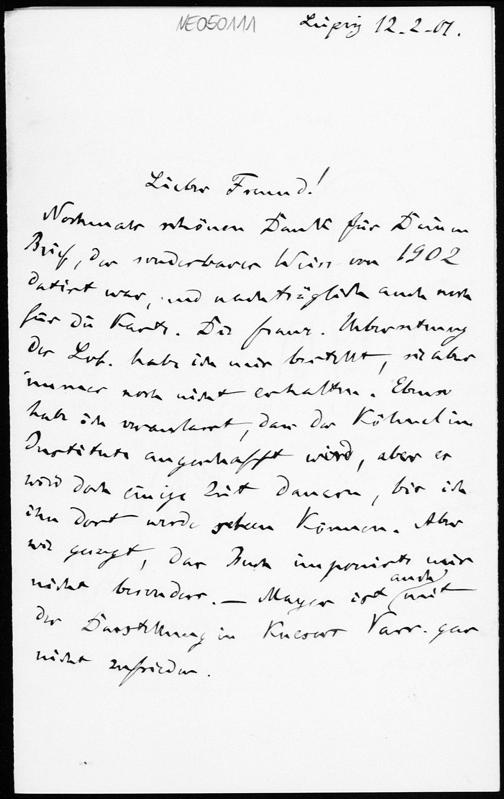 NE050111
Leipzig 12-2-01.
Lieber Freund!
Nochmals schönen Dank für Deinen
Brief, der sonderbarer Weise von 1902
datirt war, und nachträglich auch noch
für die Karte. Die franz. Übersetzung
der Lob. habe ich mir bestellt, sie aber
immer noch nicht erhalten. Ebenso
habe ich veranlasst, dass der Köhnel im
Institute angeschafft wird, aber es
wird doch einige Zeit dauern, bis ich
ihn dort werde sehen können. Aber
wie gesagt, das Buch imponirte mir
nicht besonders. — Mayer ist auch mit
der Darstellung in Knesers Varr. gar
nicht zufrieden.